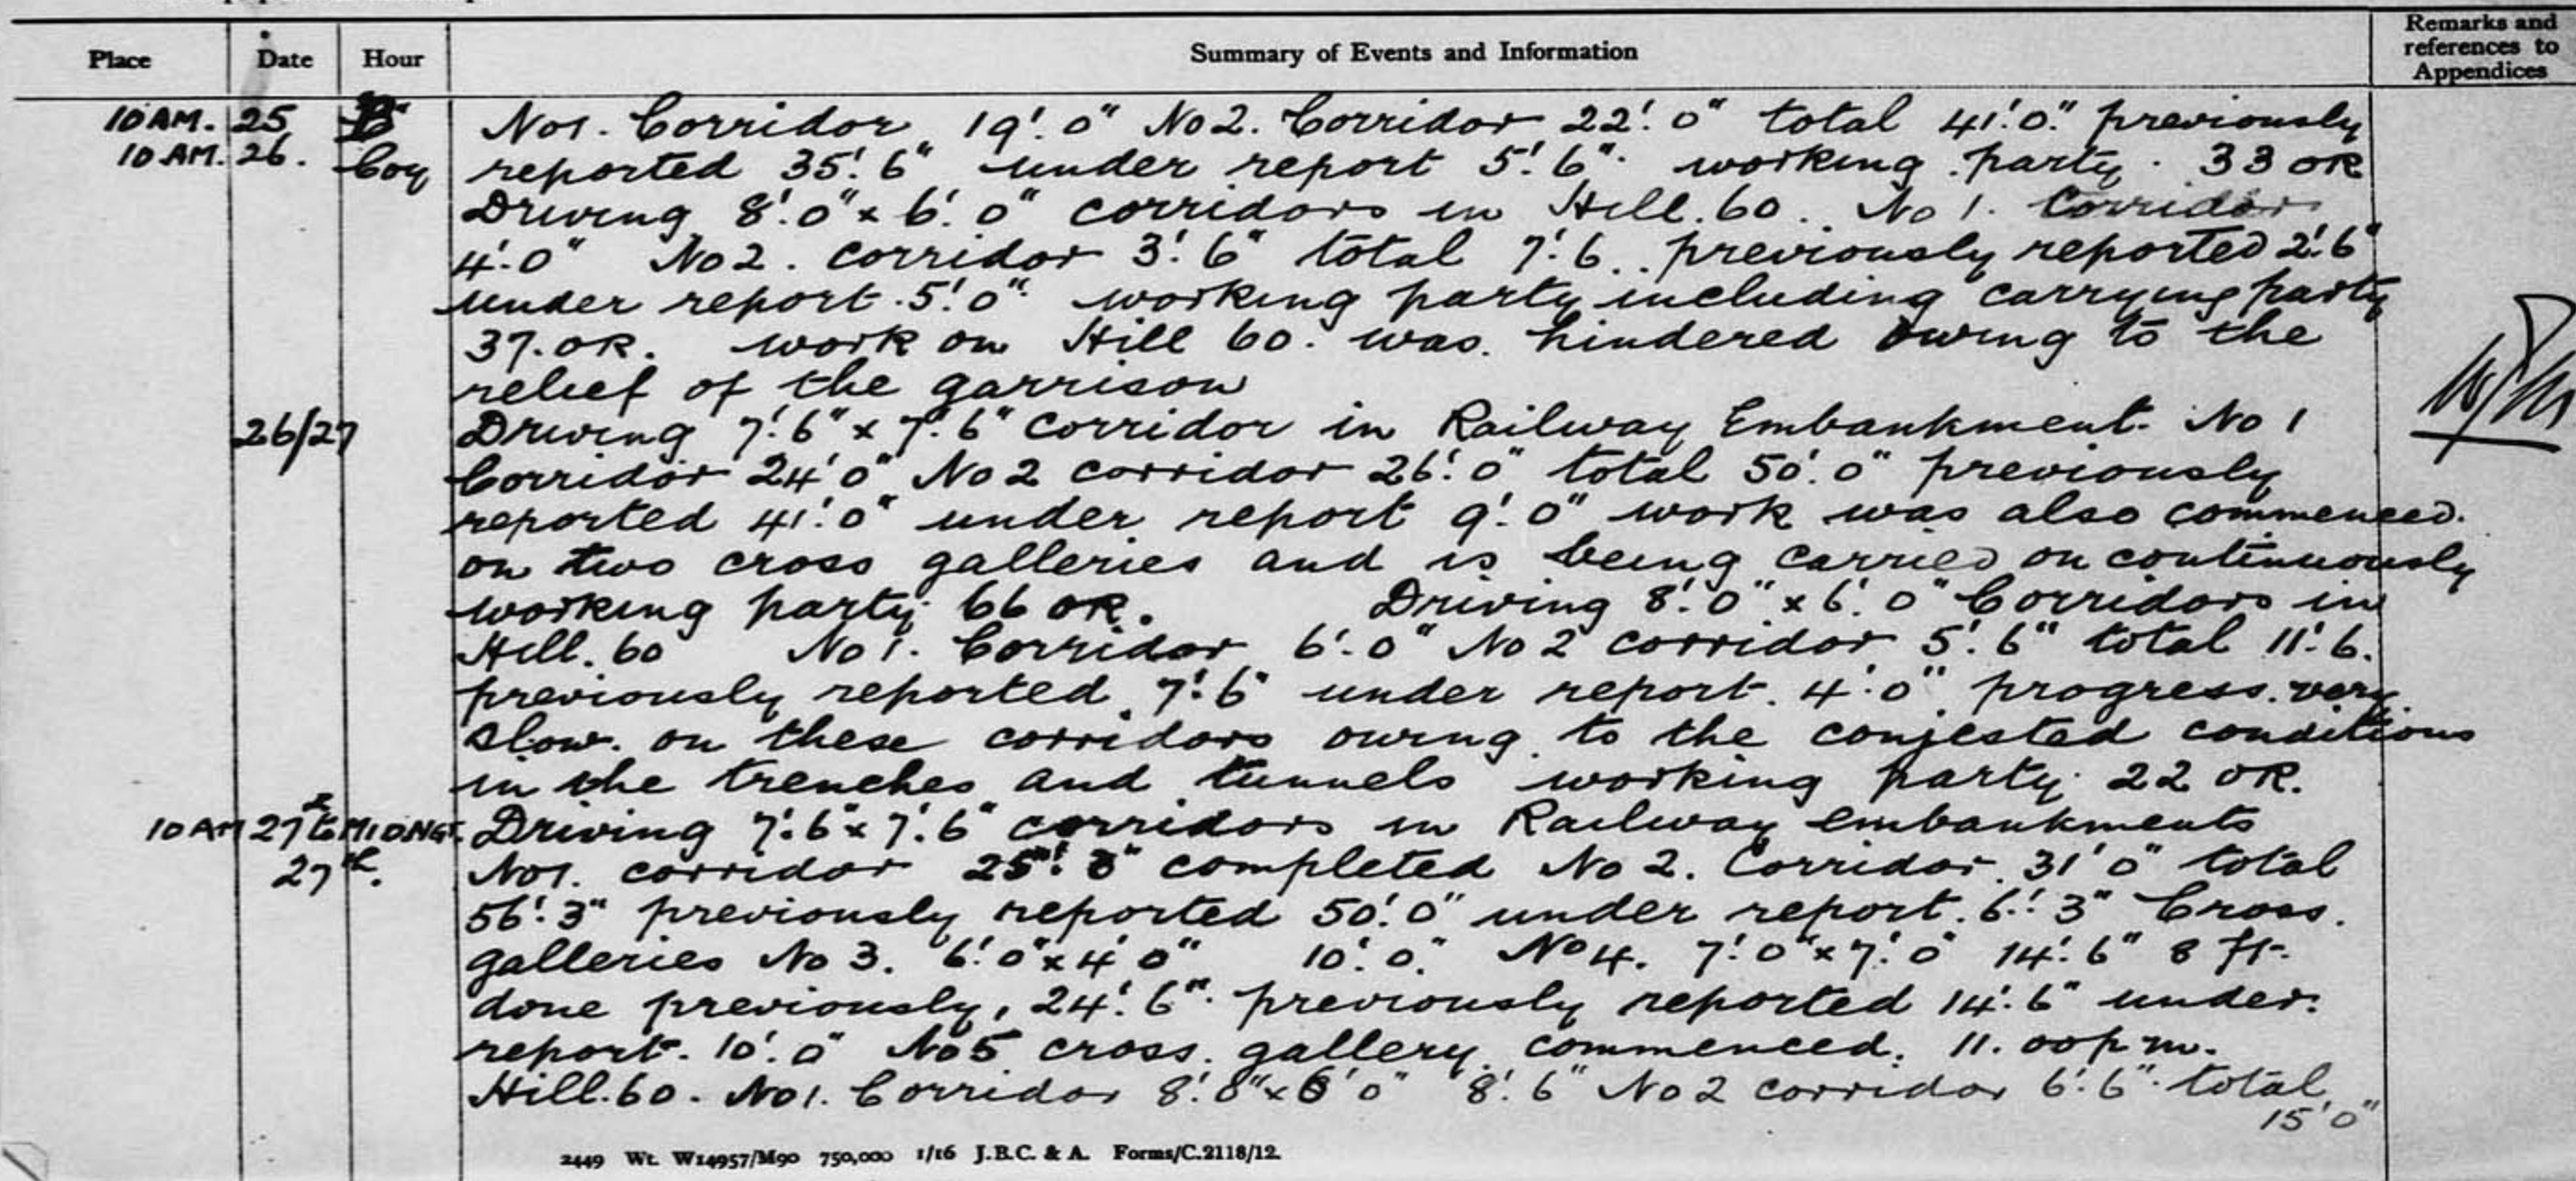 Place Date Hour Summary of Events and Information Remarks and references to Appendices
10 AM. 25 "B" No1. Corridor 19'.0" No2. Corridor 22'.0" total 41'.0". previously
10 AM. 26. Coy reported 35'.6" under report 5'.6". working party. 33 OR
Driving 8'.0" x 6'.0" corridors in Hill.60. No 1. Corridor
4'.0" No2. corridor 3'.6" total 7'.6.. previously reported 2'.6"
under report.5'.0". working party including carrying party
37.OR. work on Hill 60. was. hindered owing to the
relief of the garrison
26/27 Driving 7'.6" x 7'.6" corridor in Railway Embankment. No 1
Corridor 24'0" No2 corridor 26'.0" total 50'.0" previously
reported 41'.0" under report 9'.0" work was also commenced.
on two cross galleries and is being carried on continuously
working party. 66 OR. Driving 8'.0" x 6'.0" Corridors in
Hill.60 No 1. Corridor 6'.0" No 2 corridor 5'.6" total 11'.6.
previously reported 7'.6" under report. 4'.0" progress. very
slow. on these corridors owing to the conjested conditions
in the trenches and tunnels working party. 22 OR.
10 AM 27th to MIDNGT. Driving 7'.6" x 7'.6" corridors in Railway embankments
27th. No1. corridor 25'. completed No 2. Corridor. 31'0" total
56'.3" previously reported 50'.0" under report. 6'.3" Cross.
galleries No 3. 6'.0" x 4'0" 10'.0". No 4. 7'.0" x 7'.0" 14'.6" 8 ft.
done previously, 24'.6". previously reported 14'.6" under.
report. 10'.0" No5 cross. gallery. commenced. 11.00 p.m.
Hill.60. No1. Corridor 8'.0" x 6'0" 8'.6" No 2 corridor 6'.6". total
15'0"
2449 Wt. W14957/M90 750,000 1/16 J.B.C. & A. Forms/C.2118/12.